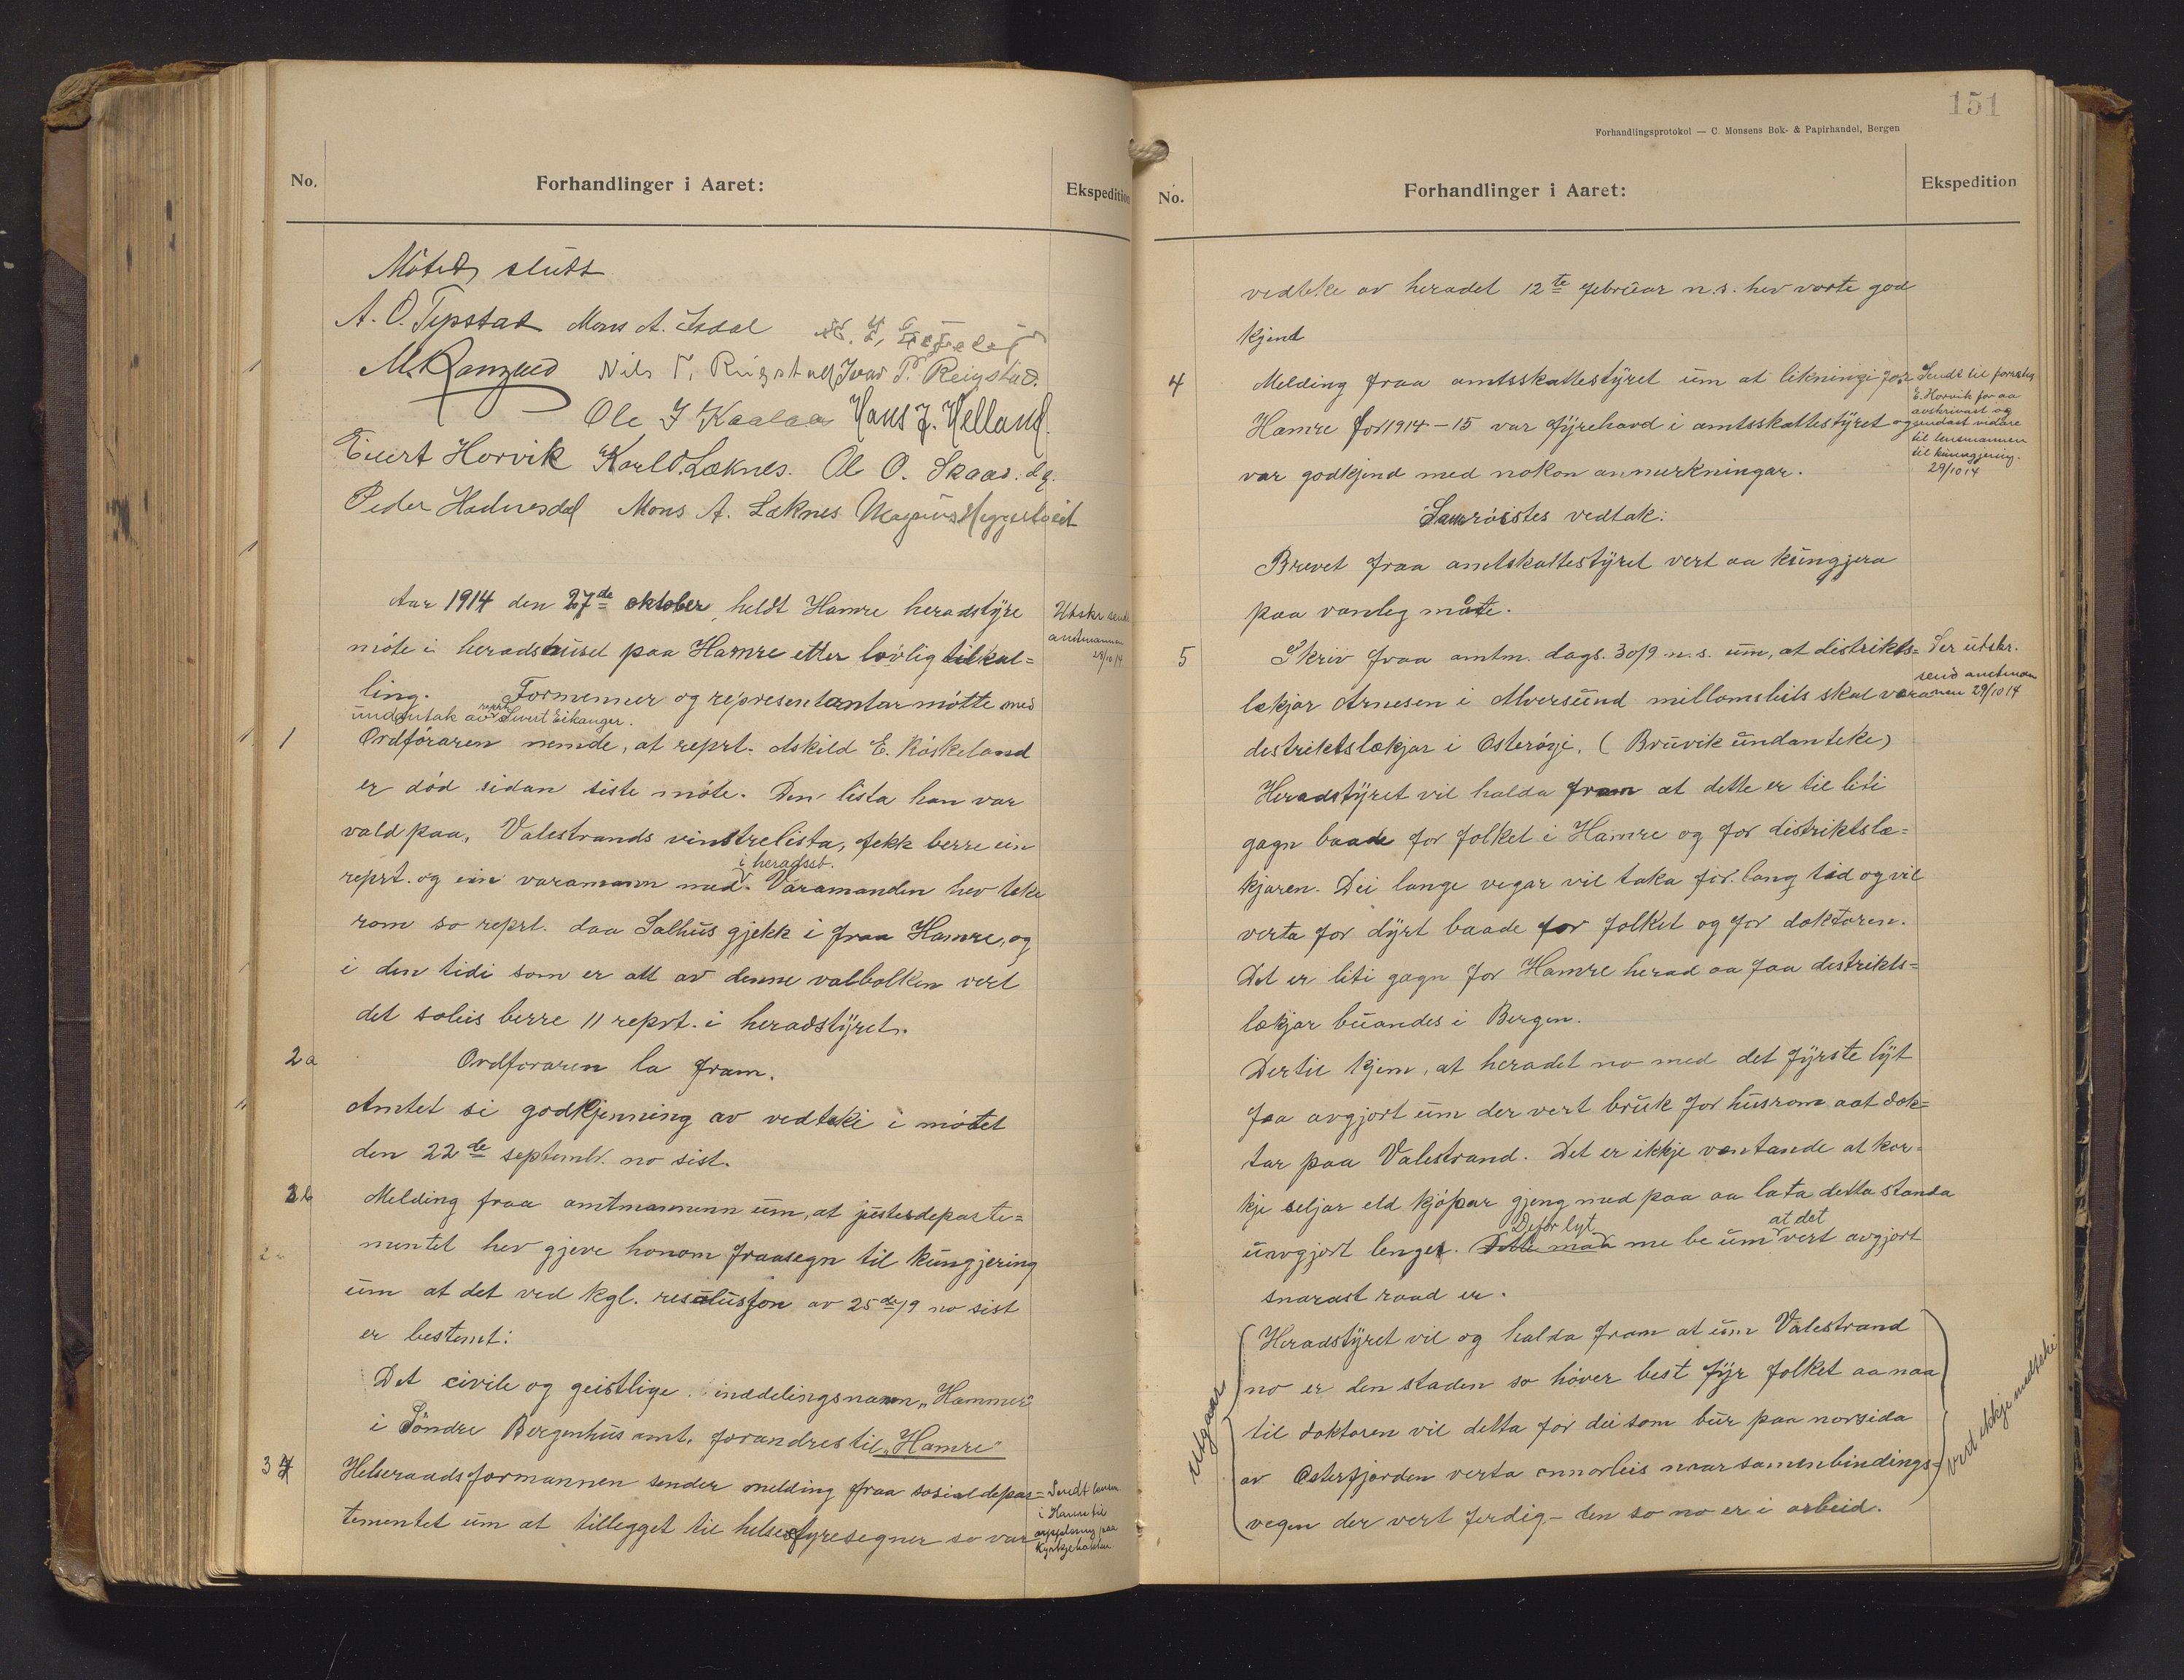 No.
Forhandlinger i Aaret:
Ekspedition
Mötet slutt
A. O. Tepstad Mons A. Isdal
M. Ramslid Nils T. Reigstad Ivar P. Reigstad.
Ole J Kaalaas Hans J. Helland.
Sivert Horvik Karl O. Læknes. Ole O. Skaar.
Peder Hadnesdal Mons A. Læknes Magnus Heggertveit
Aar 1914 den 27de oktober, heldt Hamre heradstÿre
Utskr. sendt
amtmannen
28/10 14
möte i heradshuset paa Hamre etter lovlig tilkal=
ling. Formenner og representantar mötte med
undantak av reprt. Sivert Eikanger.
1
Ordföraren nemde, at reprt. Askild E. Röskeland
er död sidan siste möte. Den lista han var
vald paa, Valestrands vinstrelista, fekk berre ein
reprt. og ein varamann med i heradsst. Varamanden hev teke
rom so reprt. daa Salhus gjekk i fraa Hamre, og
i den tidi som er att av denne valbolken vert
det soleis berre 11 reprt. i heradstÿret.
2a
Ordföraren la fram.
Amtet si godkjenning av vedtaki i mötet
den 22de septembr. no sist.
2b
Melding fraa amtmannenn um, at justisdeparte=
mentet hev gjeve honom fraasegn til kungjering
um at det ved kgl. resolusjon av 25de/9 no sist
er bestemt:
Det civile og geistlige inddelingsnavn „Hammer"
i Söndre Bergenhus amt, forandres til „Hamre"
3
Helseraadsformannen sender melding fraa sosialdepar=
Sendt lensm.
i Hamre til
opplesing paa
kyrkjebakken.
tementet um at tillegget til helsefyresegner so var
151
Forhandlingsprotokol — C. Monsens Bok- & Papirhandel, Bergen
No.
Forhandlinger i Aaret:
Ekspedition
vedteke av heradet 12te februar n.s. hev vorte god
kjend
4
Melding fraa amtsskattestÿret um at likningi for
Sendt til
E. Horvik for aa
avskrivast og
sendast vidare
til lensmannen
til kunngjering.
29/10 14
Hamre for 1914-15 var fÿrehavd i amtsskattestÿret og
var godkjend med nokon anmerkningar.
Samröistes vedtak:
Brevet fraa amtskattestÿret vert aa kungjera
paa vanleg måte.
5
Skriv fraa amtm. dags. 30/9 n.s. um, at distrikts=
Ser utskr.
send amtman
nen 29/10 14
lækjar Arnesen i Alversund millomsbils skal vera
distriktslækjar i Osteröyi. (Bruvik undanteke)
Heradstÿret vil halda fram at dette er til liti
gagn baade for folket i Hamre og for distriktslæ=
kjaren. Dei lange vegar vil taka for lang tid og vil
verta for dÿrt baade for folket og for doktoren.
Det er liti gagn for Hamre herad aa faa distrikts=
lækjar buandes i Bergen.
Dertil kjem, at heradet no med det fÿrste lÿt
faa avgjort um der vert bruk for husrom aat dok=
tar paa Valestrand. Det er ikkje ventande at kor=
kje seljar eld kjöpar gjeng med paa aa lata detta standa
uavgjort lenger. Dette maa Defor lyt me be um at det vert avgjort
snarast raad er.
Heradstÿret vil og halda fram at um Valestrand
no er den staden so höver best fÿr folket aa naa
til doktoren vil detta for dei som bur paa norsida
av Osterfjorden verta annorleis naar sammbindings=
vegen der vert ferdig - den so no er i arbeid.
Utgaar
Vert ikkje medteke